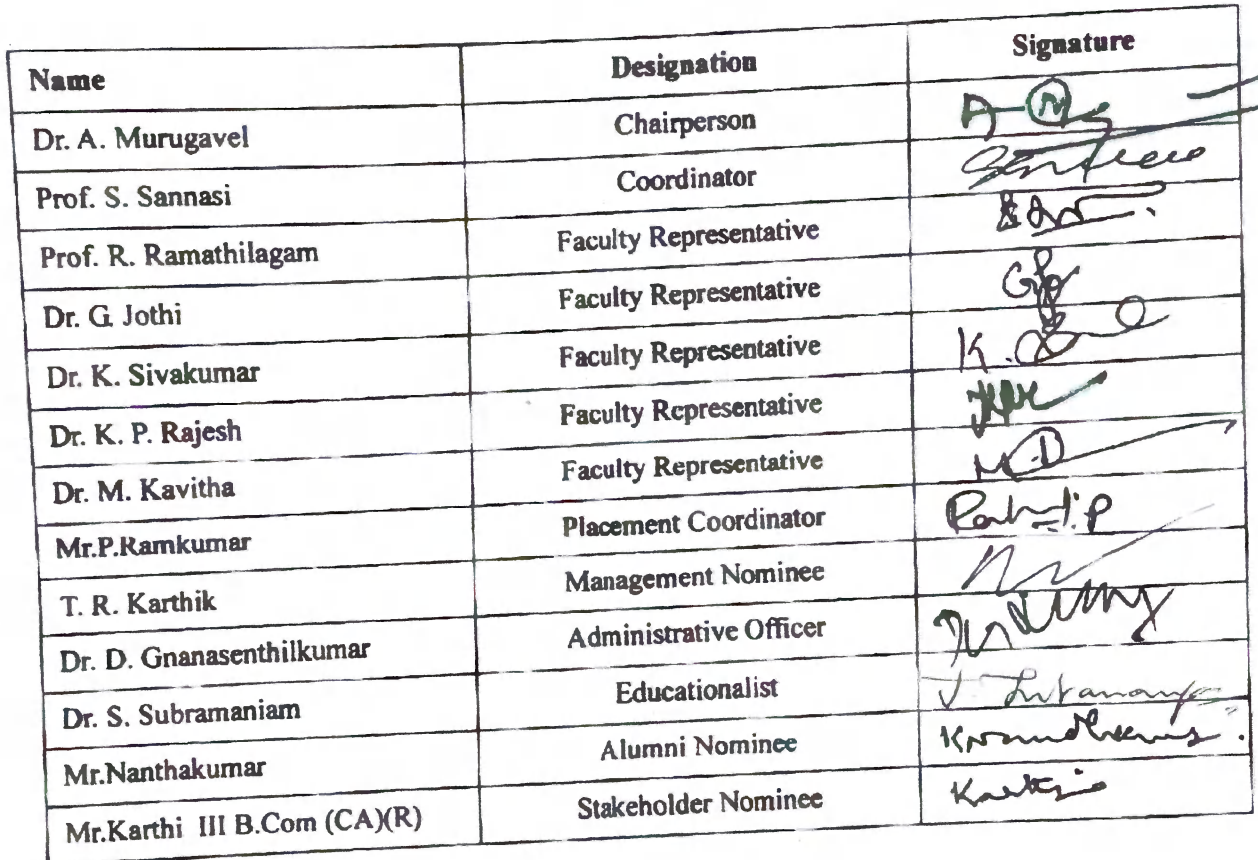 Name Designation Signature
Dr. A. Murugavel Chairperson
Prof. S. Sannasi Coordinator
Prof. R. Ramathilagam Faculty Representative
Dr. G. Jothi Faculty Representative
Dr. K. Sivakumar Faculty Representative
Dr. K. P. Rajesh Faculty Representative
Dr. M. Kavitha Faculty Representative
Mr.P.Ramkumar Placement Coordinator
T. R. Karthik Management Nominee
Dr. D. Gnanasenthilkumar Administrative Officer
Dr. S. Subramaniam Educationalist
Mr.Nanthakumar Alumni Nominee
Mr.Karthi III B.Com (CA)(R) Stakeholder Nominee